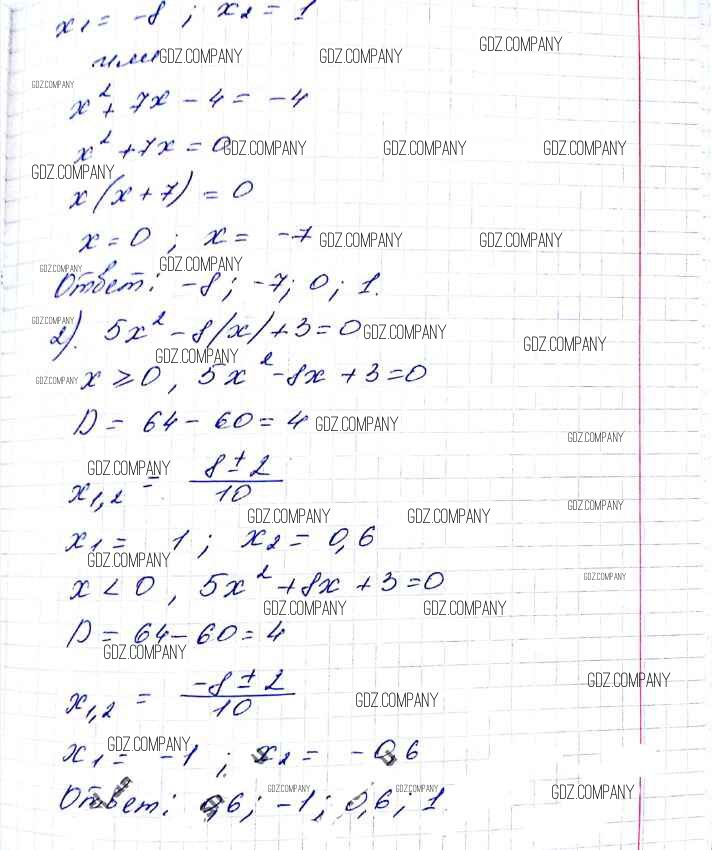 x₁ = -8 ; x₂ = 1
или GDZ.COMPANY GDZ.COMPANY GDZ.COMPANY
GDZ.COMPANY
x² + 7x - 4 = -4
x² + 7x = 0 GDZ.COMPANY GDZ.COMPANY GDZ.COMPANY
GDZ.COMPANY
x(x + 7) = 0
x = 0 ; x = -7 GDZ.COMPANY GDZ.COMPANY
GDZ.COMPANY GDZ.COMPANY
Ответ: -8 ; -7 ; 0 ; 1.
GDZ.COMPANY
2). 5x² - 8/x/ + 3 = 0 GDZ.COMPANY GDZ.COMPANY
GDZ.COMPANY
GDZ.COMPANY x ≥ 0 , 5x² - 8x + 3 = 0
D = 64 - 60 = 4 GDZ.COMPANY
GDZ.COMPANY
GDZ.COMPANY
x₁,₂ = (8 ± 2)/10
GDZ.COMPANY GDZ.COMPANY GDZ.COMPANY
x₁ = 1 ; x₂ = 0,6
GDZ.COMPANY GDZ.COMPANY
x < 0 , 5x² + 8x + 3 = 0
GDZ.COMPANY GDZ.COMPANY
D = 64 - 60 = 4
GDZ.COMPANY
x₁,₂ = (-8 ± 2)/10 GDZ.COMPANY GDZ.COMPANY
GDZ.COMPANY
x₁ = -1 ; x₂ = -0,6
GDZ.COMPANY GDZ.COMPANY GDZ.COMPANY
Ответ: 0,6 ; -1 ; 0,6 ; 1